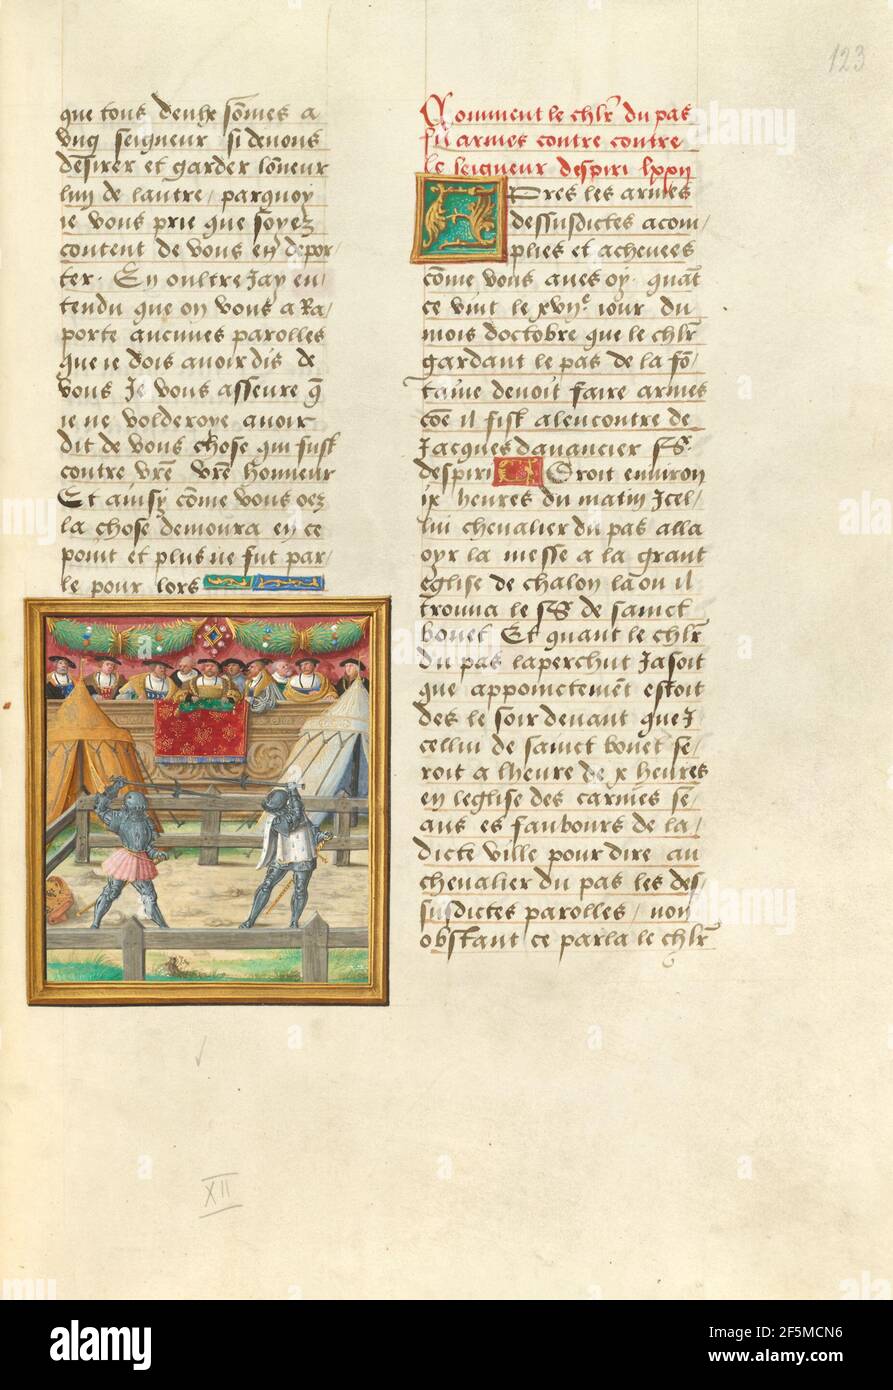 123
que tous deulx sōmes a
ung seigneur si devons
desirer et garder lōneur
lun de lautre / parquoy
ie vous prie que soyez
content de vous en depor-
ter. En oultre Jay en-
tendu que on vous a Ra-
porte aucunes parolles
que ie dois avoir dis de
vous Je vous asseure q̄
ie ne volderoye avoir
dit de vous chose qui fust
contre vr̄e vr̄e honneur
Et ainsy cōme vous oez
la chose demoura en ce
point et plus ne fut par-
le pour lors
Comment le chlr̄ du pas
fit armes contre contre
le seigneur despiri lxxii
APres les armes
dessusdictes acom-
plies et achevees
cōme vous aves oy. quāt
ce vint le xvij.e iour du
mois doctobre que le chlr̄
gardant le pas de la fō-
taine devoit faire armes
cōe il fist alencontre de
Jacques davancier sr̄.
despiri Droit environ
ix heures du matin Jcel-
lui chevalier du pas alla
oyr la messe a la grant
eglise de chalon la ou il
trouva le sr̄ de sainct
bouet Et quant le chlr̄
du pas laperchut Jasoit
que appoinctemēt estoit
des le soir devant que J
cellui de sainct bouet se-
roit a lheure de x heures
en leglise des carmes se-
ans es faubours de la-
dicte ville pour dire au
chevalier du pas les des-
susdictes parolles / non
obstant ce parla le chlr̄
XII
alamy
Image ID: 2F5MCN6
www.alamy.com